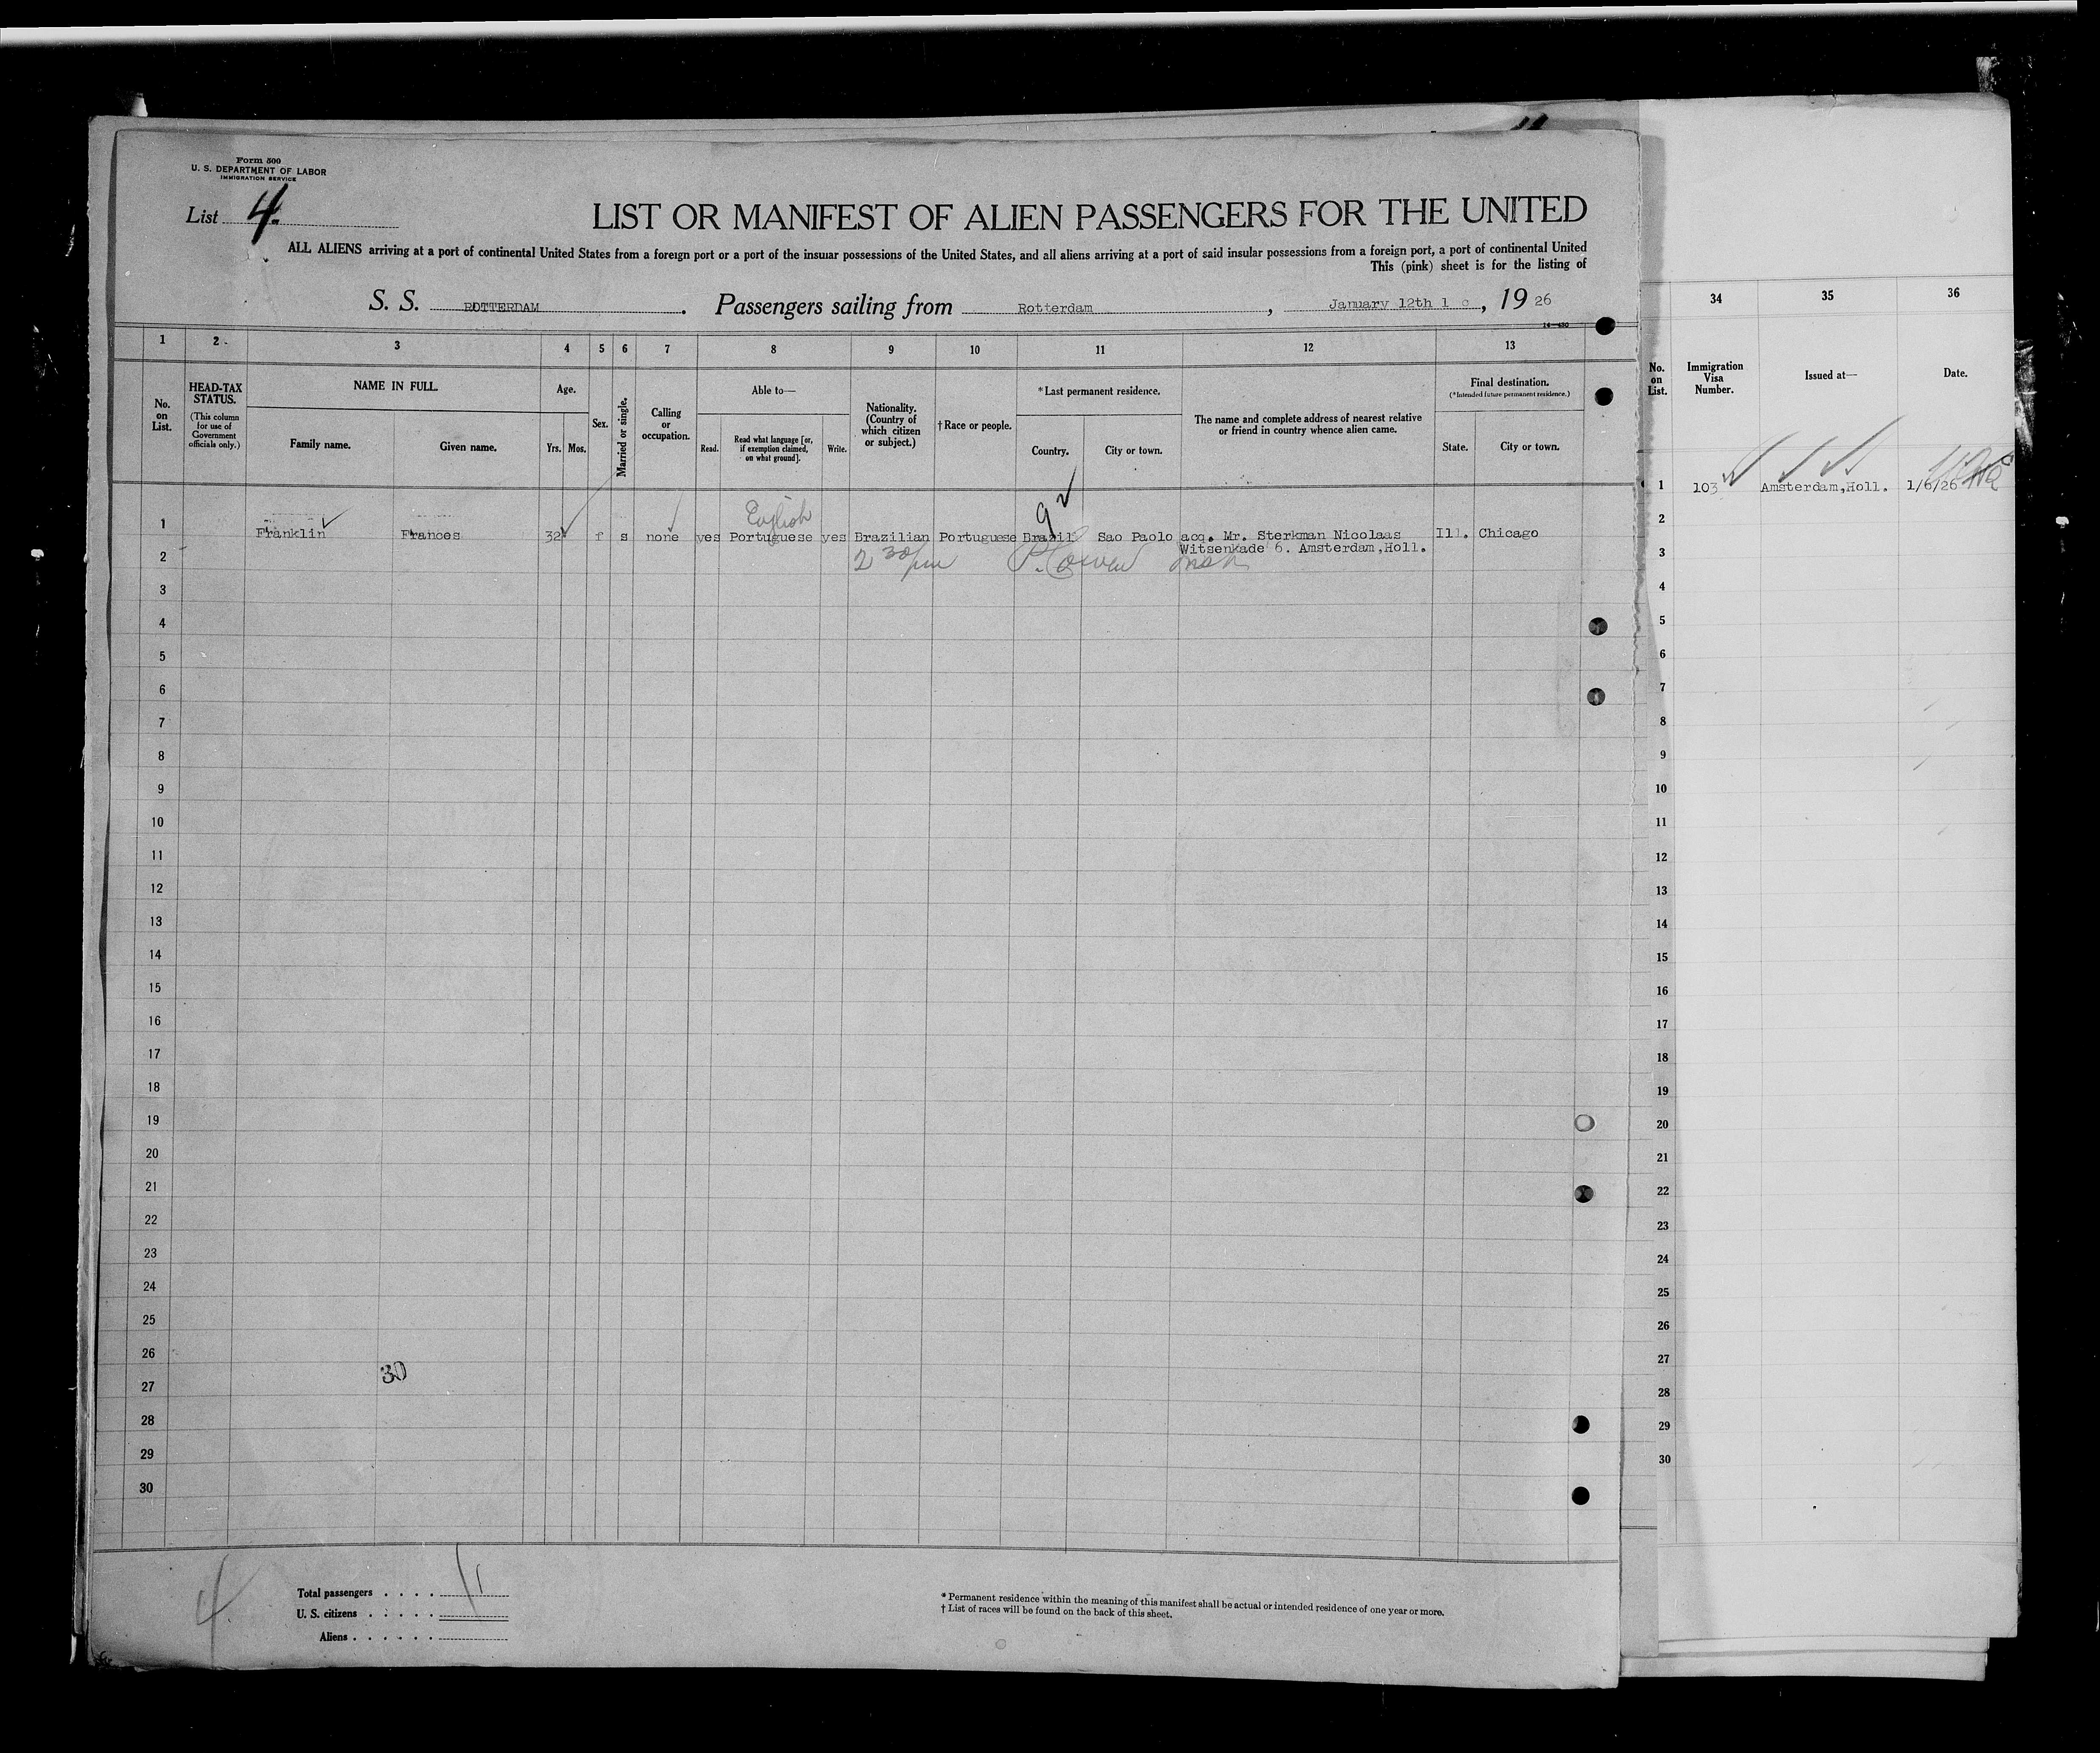 Form 500
U. S. DEPARTMENT OF LABOR
IMMIGRATION SERVICE
List 4.
LIST OR MANIFEST OF ALIEN PASSENGERS FOR THE UNITED
ALL ALIENS arriving at a port of continental United States from a foreign port or a port of the insular possessions of the United States, and all aliens arriving at a port of said insular possessions from a foreign port, a port of continental United
This (pink) sheet is for the listing of
S. S. ROTTERDAM. Passengers sailing from Rotterdam, January 12th, 1926
14—430
1 2 3 4 5 6 7 8 9 10 11 12 13
No. on List.
HEAD-TAX STATUS.
(This column for use of Government officials only.)
NAME IN FULL.
Family name.
Given name.
Age.
Yrs. Mos.
Sex.
Married or single.
Calling or occupation.
Able to—
Read.
Read what language [or, if exemption claimed, on what ground].
Write.
Nationality. (Country of which citizen or subject.)
†Race or people.
*Last permanent residence.
Country.
City or town.
The name and complete address of nearest relative or friend in country whence alien came.
Final destination.
(*Intended future permanent residence.)
State.
City or town.
English
92
1 Franklin Frances 32 f s none yes Portuguese yes Brazilian Portuguese Brazil Sao Paolo acq. Mr. Sterkman Nicolaas Ill. Chicago
Witsenkade 6. Amsterdam,Holl.
2 2 30 pm
3
4
5
6
7
8
9
10
11
12
13
14
15
16
17
18
19
20
21
22
23
24
25
26
30
27
28
29
30
4
Total passengers
U. S. citizens
Aliens
* Permanent residence within the meaning of this manifest shall be actual or intended residence of one year or more.
† List of races will be found on the back of this sheet.
34 35 36
No. on List.
Immigration Visa Number.
Issued at—
Date.
1 103 Amsterdam,Holl. 1/6/26
2
3
4
5
6
7
8
9
10
11
12
13
14
15
16
17
18
19
20
21
22
23
24
25
26
27
28
29
30